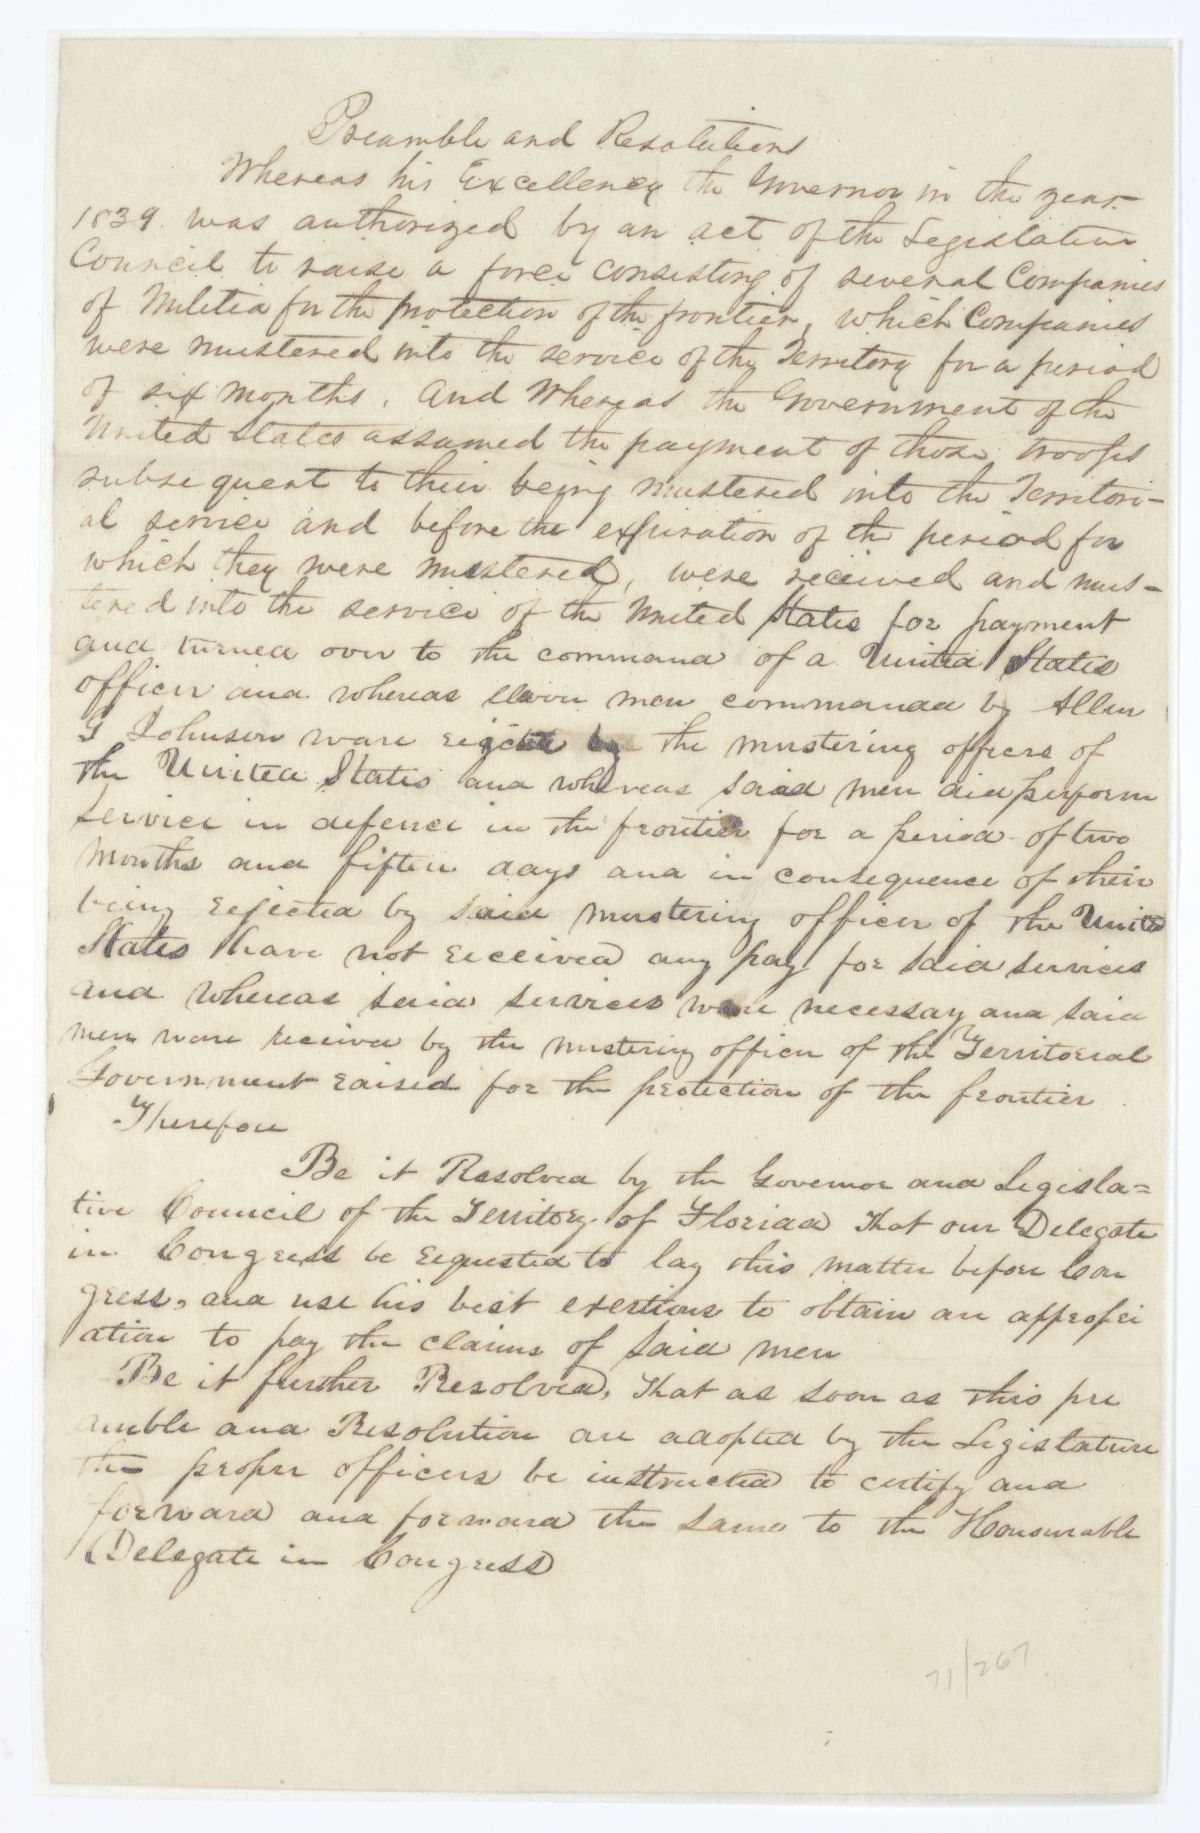 Preamble and Resolutions
Whereas his Excellency the Governor in the year
1839 was authorized by an act of the Legislative
Council to raise a force consisting of several Companies
of Militia for the protection of the frontier, which Companies
were mustered into the service of the Territory for a period
of six months. And Whereas the Government of the
United States assumed the payment of those troops
subsequent to their being mustered into the Territori-
al service and before the expiration of the period for
which they were mustered, were received and mus-
tered into the service of the United States for payment
and turned over to the command of a United States
officer and whereas eleven men commanded by Allen
G Johnson ware rejected by the mustering officers of
the United States and whereas said men did perform
service in defence in the frontier for a period of two
months and fifteen days and in consequence of their
being rejected by said mustering officer of the United
States have not received any pay for said services
and whereas said services were necessay and said
men ware received by the mustering officer of the Territorial
Government raised for the protection of the frontier
Therefore
Be it Resolved by the Governor and Legisla=
tive Council of the Territory of Florida that our Delegate
in Congress be requested to lay this matter before Con
gress, and use his best exertions to obtain an appropri
ation to pay the claims of said men
Be it further Resolved, that as soon as this pre
amble and Resolution are adopted by the Legislature
the proper officers be instructed to certify and
forward and forward the same to the Honourable
Delegate in Congress
71/267